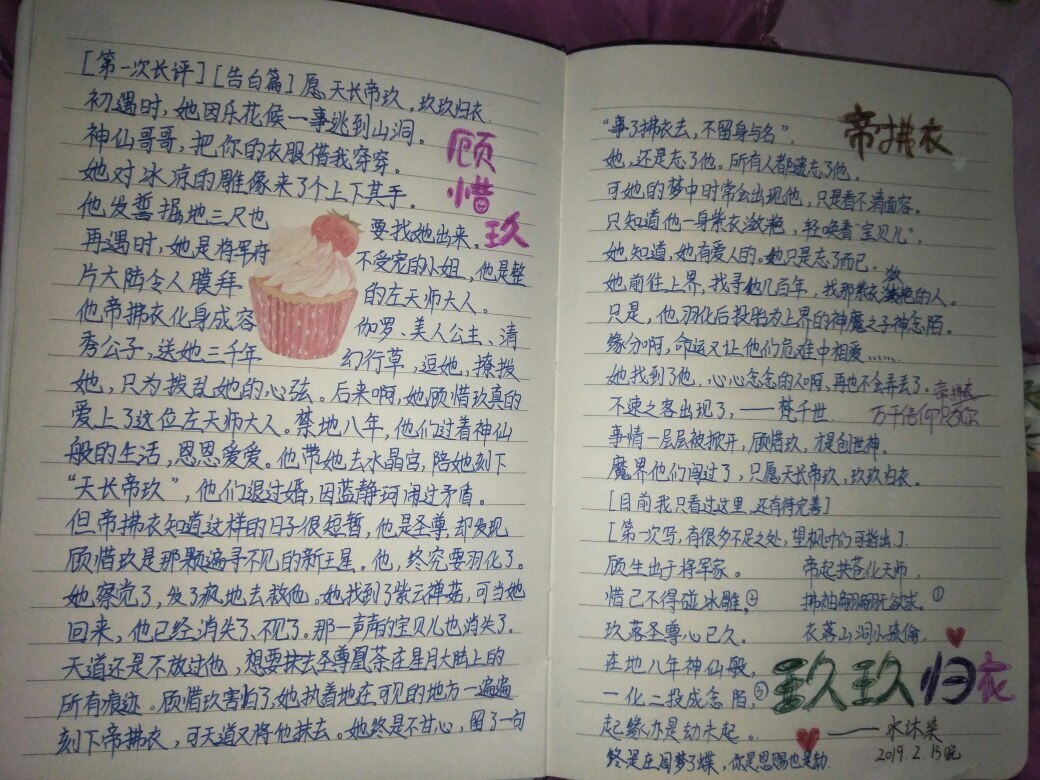 [第一次长评][告白篇]愿天长帝玖，玖玖归衣
初遇时，她因乐花候一事逃到山洞。
神仙哥哥，把你的衣服借我穿穿。
她对冰凉的雕像来了个上下其手。
他发誓掘地三尺也要找她出来。
再遇时，她是将军府不受宠的小姐，他是整
片大陆令人膜拜的左天师大人。
他帝拂衣化身成容伽罗、美人公主、清
秀公子，送她三千年幻行草，逗她，撩拨
她，只为拨乱她的心弦。后来啊，她顾惜玖真的
爱上了这位左天师大人。禁地八年，他们过着神仙
般的生活，恩恩爱爱。他带她去水晶宫，陪她刻下
“天长帝玖”，他们退过婚，因蓝静珂闹过矛盾。
但帝拂衣知道这样的日子很短暂，他是圣尊，却发现
顾惜玖是那颗遍寻不见的新王星。他，终究要羽化了。
她察觉了，发了疯地去救他。她找到了紫云禅菇，可当她
回来，他已经消失了、不见了。那一声声的宝贝儿也消失了。
天道还是不放过他，想要抹去圣尊凰荼在星月大陆上的
所有痕迹。顾惜玖害怕了，她执着地在可见的地方一遍遍
刻下帝拂衣，可天道又将他抹去。她终是不甘心，留了一句
顾惜玖
帝拂衣
“事了拂衣去，不留身与名”。
她，还是忘了他。所有人都遗忘了他。
可她的梦中时常会出现他，只是看不清面容。
只知道他一身紫衣潋滟，轻唤着“宝贝儿”。
她知道，她有爱人的。她只是忘了而已。
她前往上界，找寻他几百年，找那紫衣潋滟的人。
只是，他羽化后投胎为上界的神魔之子神念陌。
缘分啊，命运又让他们危难中相爱……
她找到了他，心心念念的人啊，再也不会弄丢了。
帝拂衣
不速之客出现了，——梵千世。
万千信仰只为你
事情一层层被掀开，顾惜玖，才是创世神。
魔界他们闯过了，只愿天长帝玖，玖玖归衣。
[目前我只看过这里，还有待完善]
[第一次写，有很多不足之处，望枫叶们可指出。]
顾生出于将军家。 帝起抉苍化天师，
惜己不得碰冰雕，② 拂袖翩翩无欲求。①
玖落圣尊心已久。 衣落山洞小孩偷。
在地八年神仙般，
一化二投成念陌，③
起缘亦是劫未起。
终是庄周梦了蝶，你是恩赐也是劫
玖玖归衣
——水沐柒
2019.2.15晚